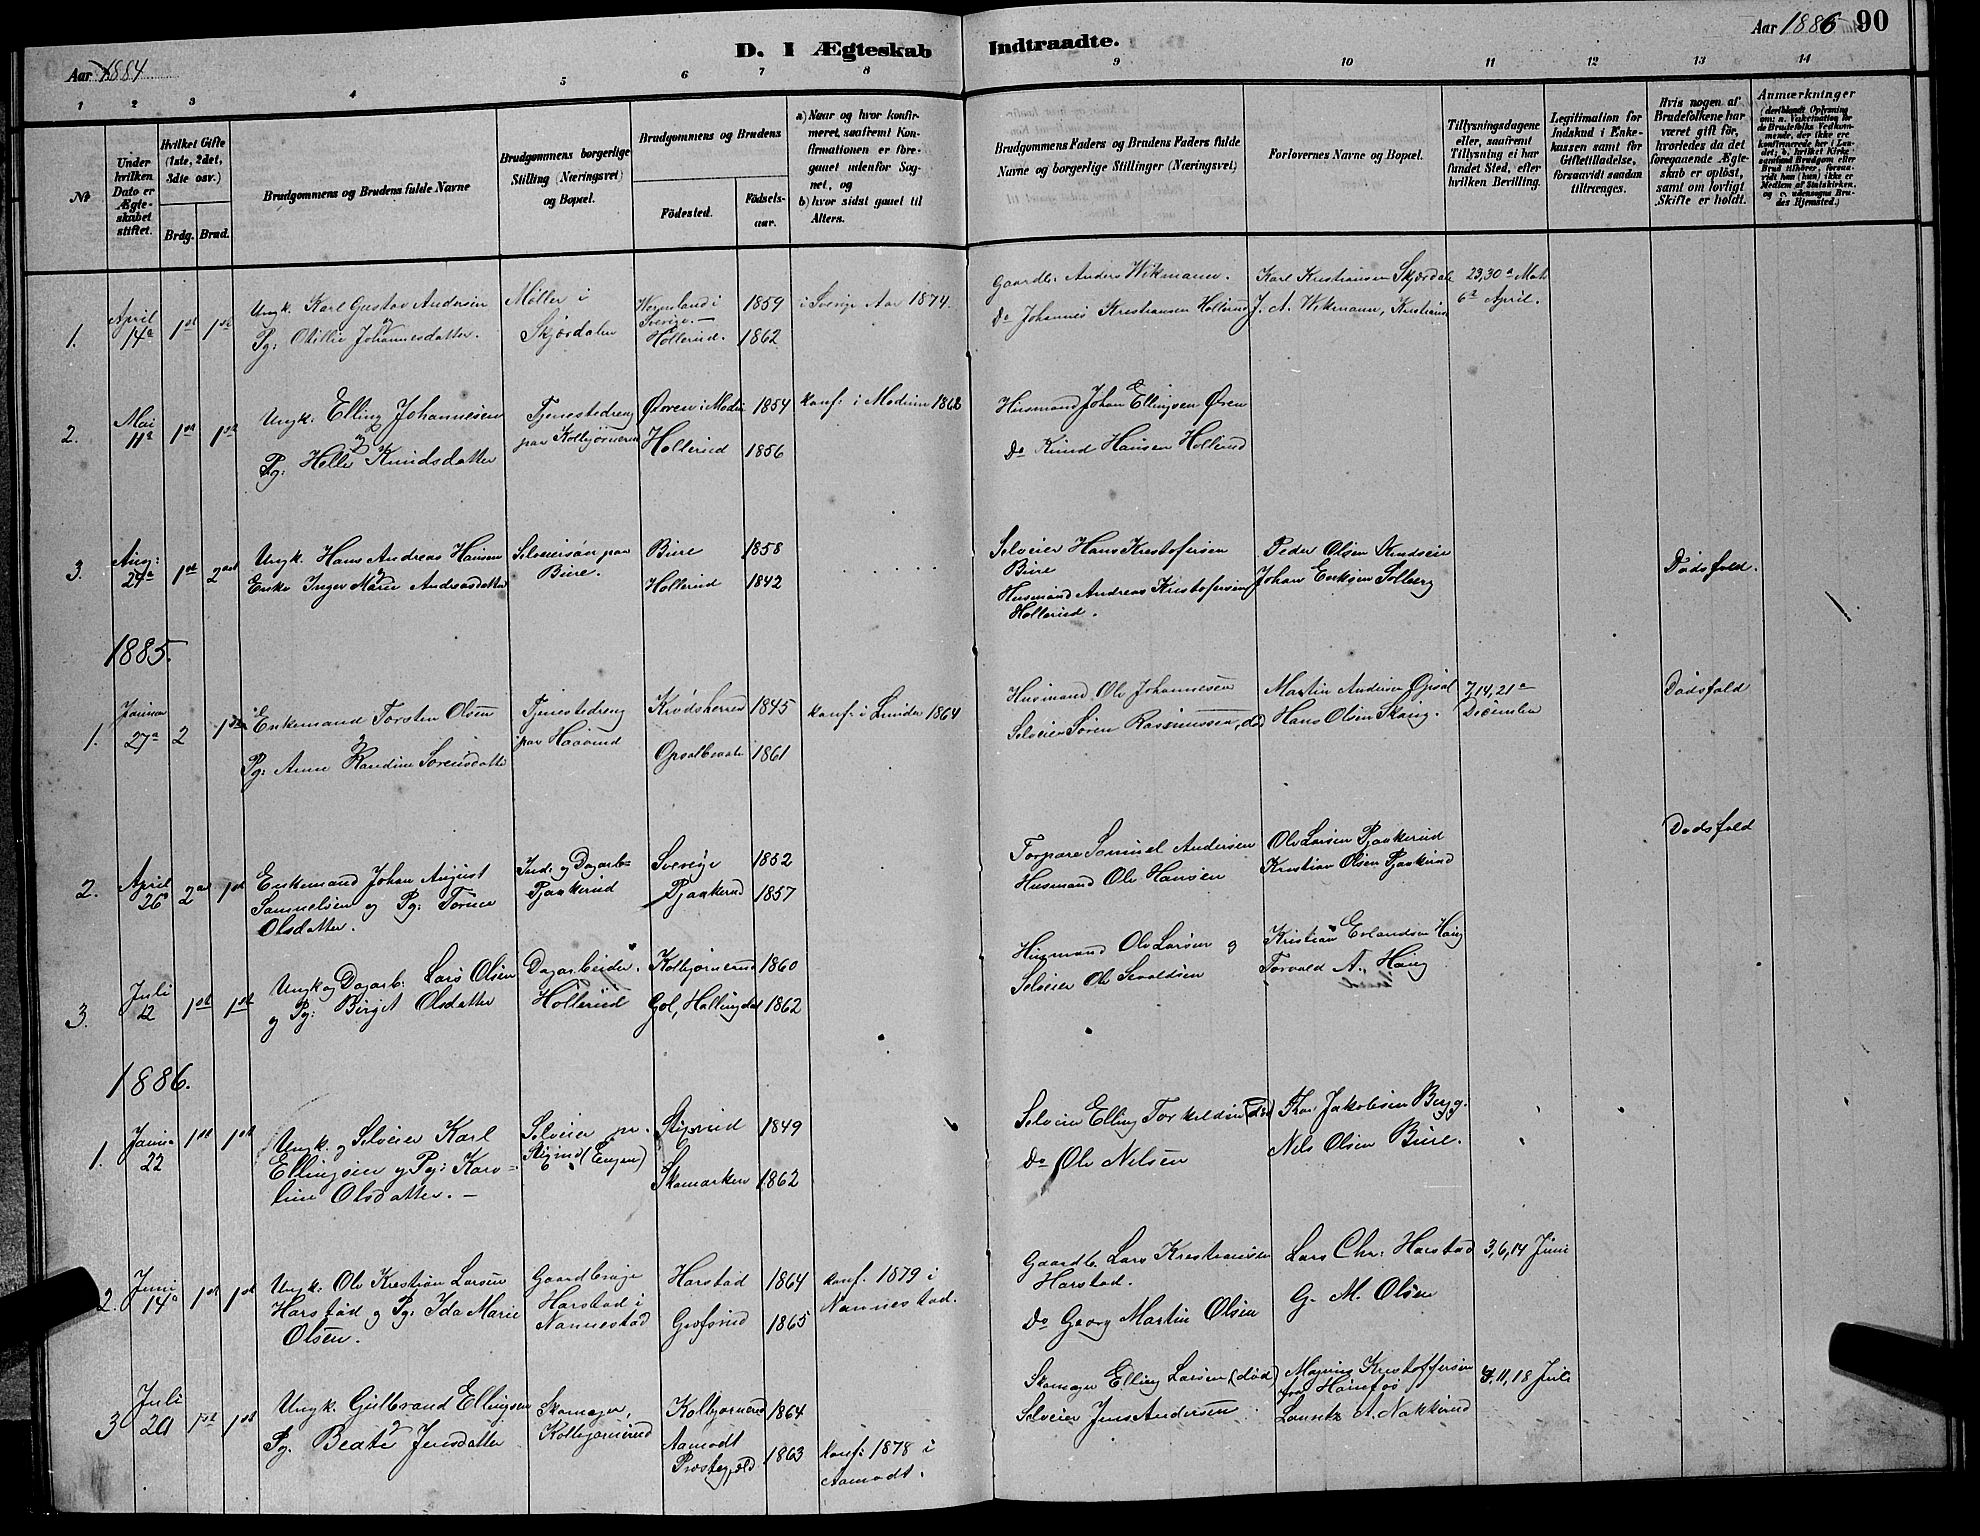 D. I Ægteskab Indtraadte.
Aar 1884
Aar 1886 90
1 2 3 4 5 6 7 8 9 10 11 12 13 14
No
Under hvilken Dato er Ægteskabet stiftet.
Hvilket Gifte (1ste, 2det, 3die osv.)
Brdg. Brud.
Brudgommens og Brudens fulde Navne
Brudgommens borgerlige Stilling (Næringsvei) og Bopæl.
Brudgommens og Brudens
Fødested. Fødselsaar.
a) Naar og hvor konfirmeret, saafremt Konfirmationen er foregaaet udenfor Sognet, og
b) hvor sidst gaaet til Alters.
Brudgommens Faders og Brudens Faders fulde Navne og borgerlige Stillinger (Næringsvei)
Forlovernes Navne og Bopæl.
Tillysningsdagene eller, saafremt Tillysning ei har fundet Sted, efter hvilken Bevilling.
Legitimation for Indskud i Enkekassen samt for Giftetilladelse, forsaavidt saadan tiltrænges.
Hvis nogen af Brudefolkene har været gift før, hvorledes da det foregaaende Ægteskab er opløst, samt om lovligt Skifte er holdt.
Anmærkninger
1. April 14de 1ste 1ste Ungk. Karl Gustav Andersen Møller i Wermland i 1859 i Sverige Aar 1874. Gaardbr. Anders Wikmann. Karl Kristiansen Skjærdalen 23, 30te Mats
og Sverige.
Pg: Otillie Johannesdatter. Skjærdalen Hollerud. 1862 Do Johannes Kristiansen Hollerud J. A. Wikmann, Kristiania 6te April.
2. Mai 11te 1ste 1ste Ungk. Elling Johannesen Tjenestedreng Øvren i Modum 1854 konf. i Modum 1868 Husmand Johan Ellingsen Øren
og paa Kolbjørnerud
Pg: Helle Knudsdatter Hollerud 1856 Do Knud Hansen Hollerud
3. Aug: 24de 1ste 2det Ungk. Hans Andreas Hansen Selveiersøn paa Bure 1858 Selveier Hans Kristofersen Peder Olsen
og Bure. Bure
Enke Inger Marie Andreasdatter Hollerud 1842 Husmand Andreas Kristofersen Johan Eriksen Solberg Dødsfald.
Hollerud.
1885.
1. Januar 27de 2 1ste Enkemand Torsten Olsen Tjenestedreng Krødsherred 1845 konf. i Lunder 1864 Husmand Ole Johannesen Martin Andersen Opsal 7, 14, 21de Dødsfald
og paa Haavrud Selveier Søren Rasmussen, død Hans Olsen Skaug. December
Pg: Anne Randine Sørensdatter Opsalbraate 1861
2. April 26de 2det 1ste Enkemand Johan August Ind. og Dagarb. Sverige 1852 Torpare Samuel Andersen Ole Larsen Pjaakerud Dødsfald
Samuelsen og Pg: Torine Pjaakerud Pjaakerud 1857 Husmand Ole Hansen Kristian Olsen Pjaakerud
Olsdatter.
3. Juli 12 1ste 1ste Ungk og Dagarb: Lars Olsen Dagarbeider. Kolbjørnerud 1860 Husmand Ole Larsen og Kristian Erlandsen Haug
og Pg: Birgit Olsdatter Hollerud Gol, Hallingdal 1862 Selveier Ole Torvald A. Haug
1886.
1. Januar 22 1ste 1ste Ungk. og Selveier Karl Selveier Stixrud 1849 Selveier Elling Torkildsen (død) Thor Jakobsen Berg.
Ellingsen og Pg: Karo- Stixrud (Engen)
line Olsdatter. — Skamarken 1862 Do Ole Nilsen Nils Olsen Bure.
2. Juni 14de 1ste 1ste Ungk. Ole Kristian Larsen Gaardbruger Harstad 1864 konf. 1879 i Gaardb. Lars Kristiansen Lars Chr. Harstad 3, 6, 14 Juni
Harstad og Pg: Ida Marie Harstad i Nannestad. Harstad.
Olsen. Nannestad 1865 Do Georg Martin Olsen G. M. Olsen
3 Juli 20 1ste 1ste Ungk. Gulbrand Ellingsen Skomager, Kolbjørnerud 1864 Skomager Elling Larsen (død) Magnus Kristoffersen 4, 11, 18 Juli
og Kolbjørnerud fra Hønefos
Pg. Beate Jensdatter Aamodt 1863 konf: 1878 i Selveier Jens Andersen Lauritz A. Nakkerud
Præstegjeld Aamodt.